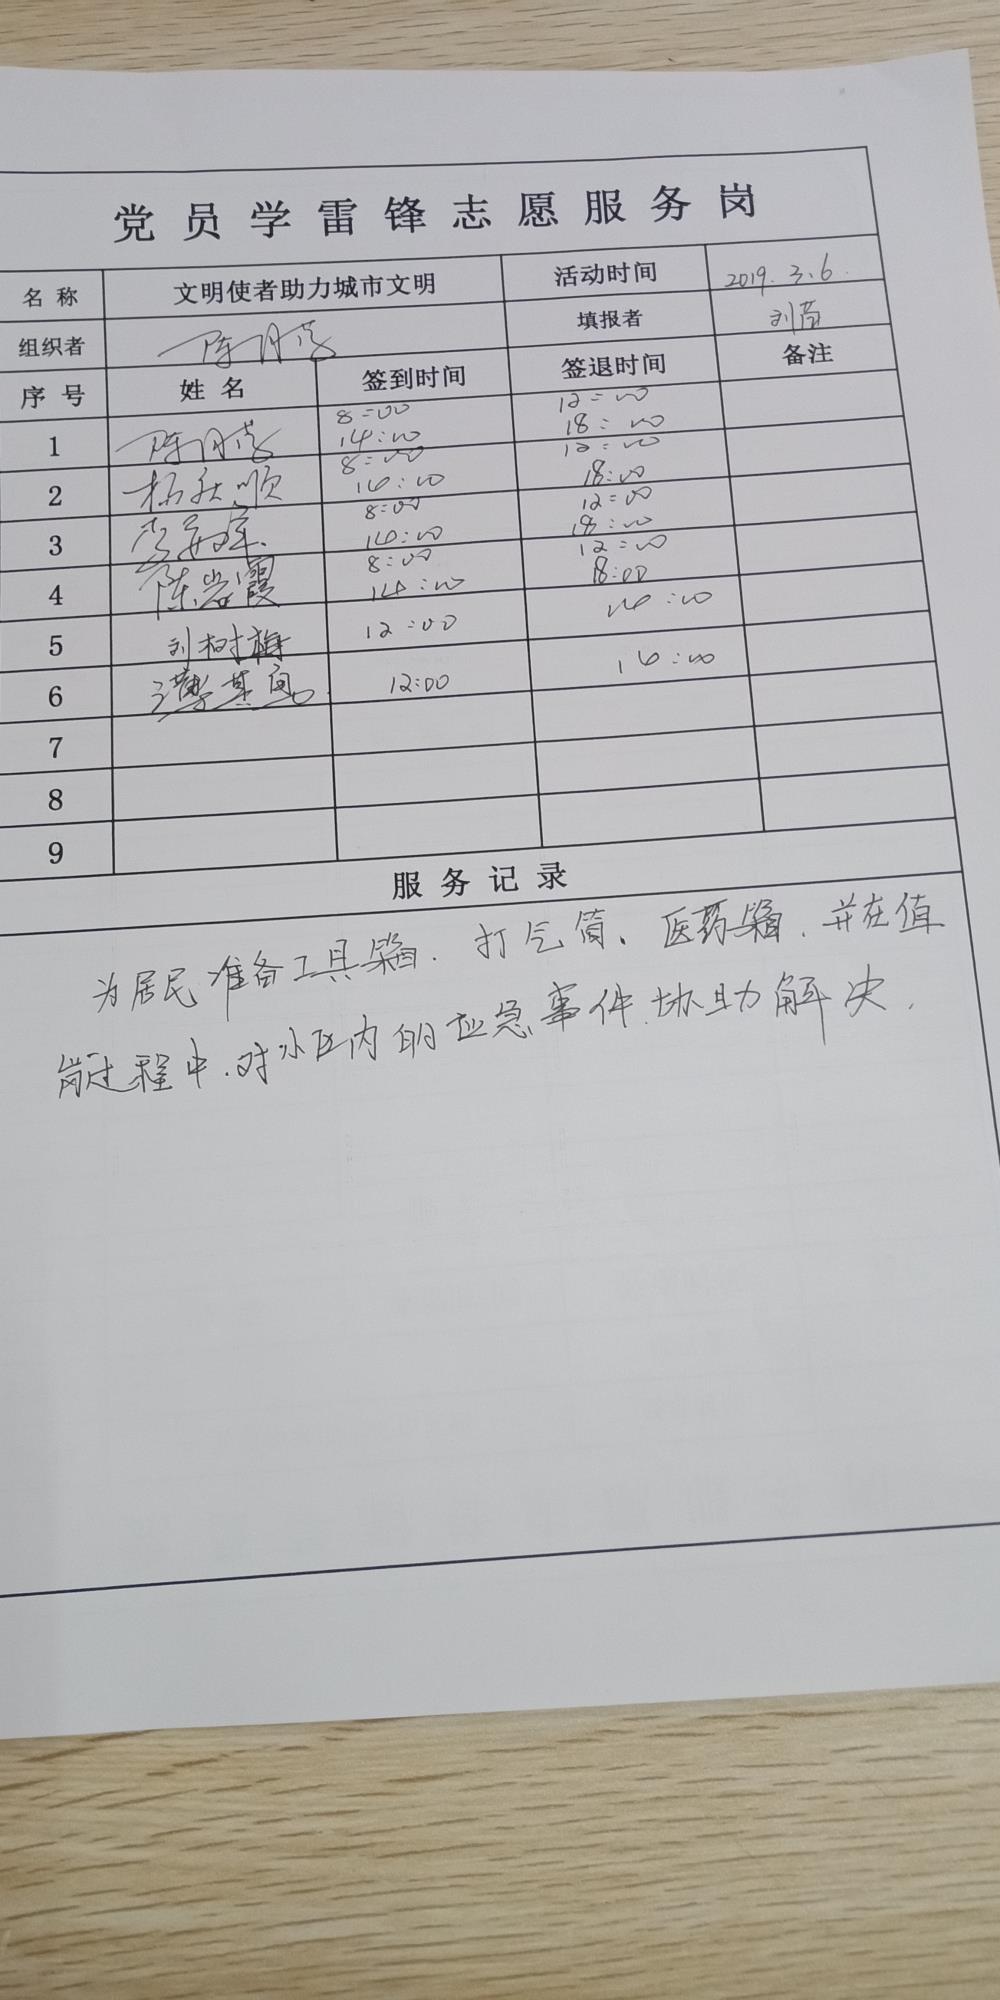 党员学雷锋志愿服务岗
名称 文明使者助力城市文明 活动时间 2019.3.6.
组织者 陈月 填报者 刘
序号 姓名 签到时间 签退时间 备注
1 陈月 8:00 14:00 12:00 18:00
2 杨秋顺 8:00 14:00 12:00 18:00
3 李 8:00 14:00 12:00 18:00
4 陈岩霞 8:00 14:00 12:00 18:00
5 刘树梅 12:00 14:00
6 12:00 14:00
7
8
9
服务记录
为居民准备工具箱、打气筒、医药箱,并在值
岗过程中,对小区内的应急事件,协助解决.